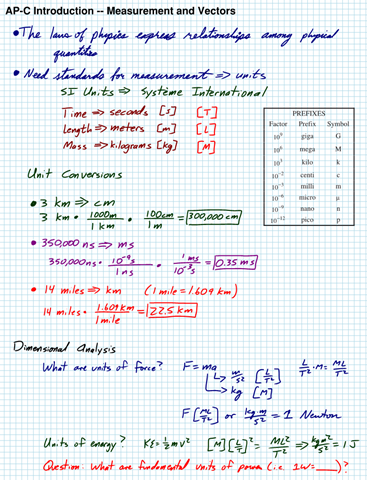 AP-C Introduction -- Measurement and Vectors
• The laws of physics express relationships among physical
quantities
• Need standards for measurement ⇒ units
SI Units ⇒ Système International
Time ⇒ seconds [s] [T]
Length ⇒ meters [m] [L]
Mass ⇒ kilograms [kg] [M]
PREFIXES
Factor Prefix Symbol
10⁹ giga G
10⁶ mega M
10³ kilo k
10⁻² centi c
10⁻³ milli m
10⁻⁶ micro μ
10⁻⁹ nano n
10⁻¹² pico p
Unit Conversions
• 3 km ⇒ cm
3 km • 1000m/1 km • 100cm/1m = 300,000 cm
• 350,000 ns ⇒ ms
350,000ns • 10⁻⁹s/1ns • 1ms/10⁻³s = 0.35 ms
• 14 miles ⇒ km (1 mile = 1.609 km)
14 miles • 1.609km/1mile = 22.5 km
Dimensional Analysis
What are units of force? F = ma L/T² • M = ML/T²
↳ m/s² [L/T²]
↳ kg [M]
F [ML/T²] or kg•m/s² = 1 Newton
Units of energy? KE = ½mv² [M][L/T]² = ML²/T² ⇒ kg•m²/s² = 1 J
Question: What are fundamental units of power (i.e. 1W = ____)?